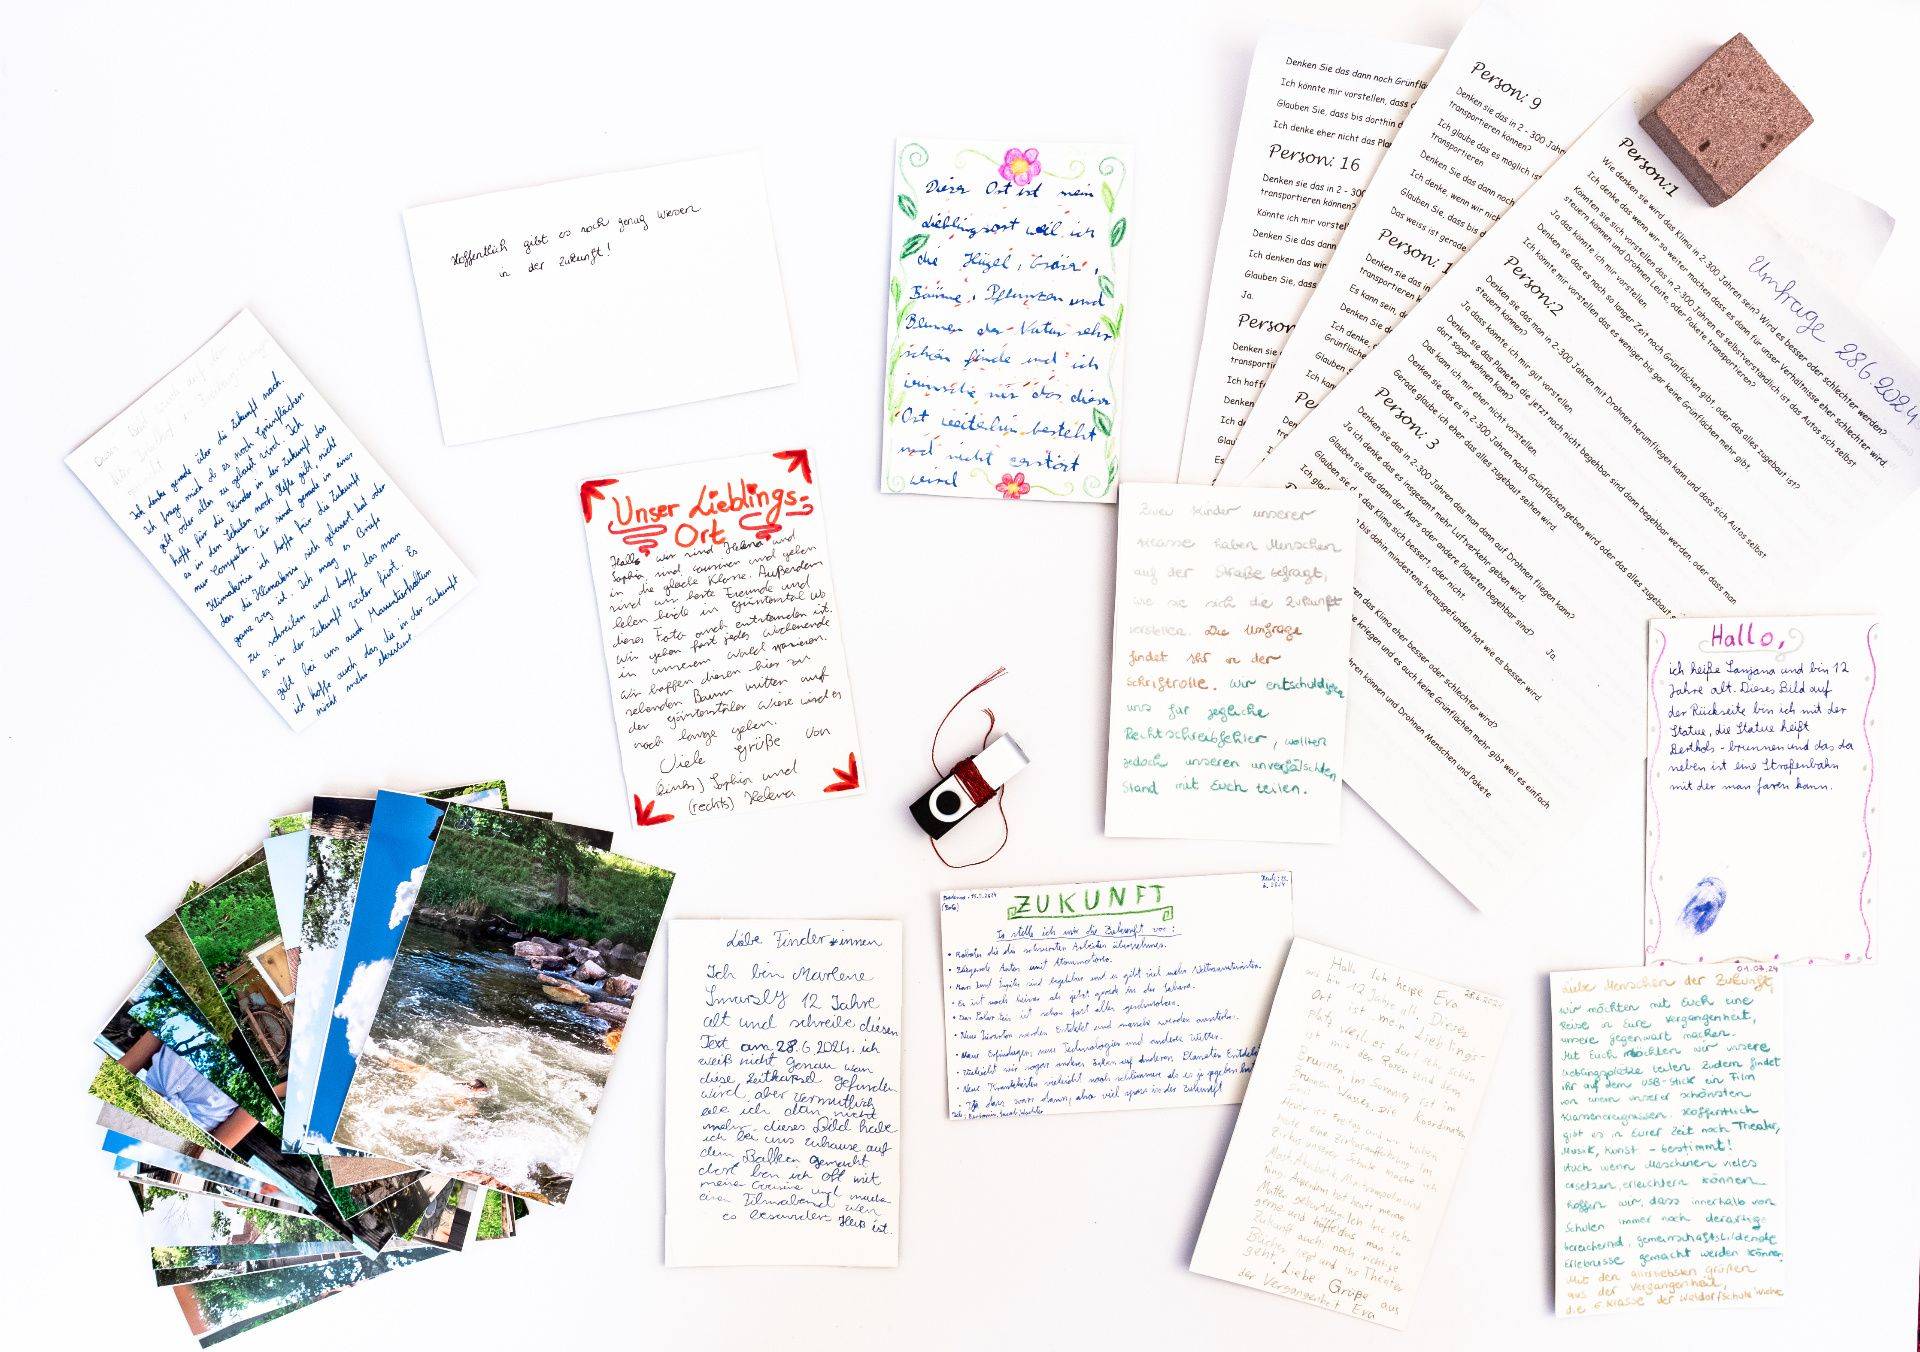 Hoffentlich gibt es noch genug Wiesen
in der Zukunft!
Ich denke gerade über die Zukunft nach.
Ich frage mich ob es noch Grünflächen
gibt oder alles zu gebaut wird. Ich
hoffe für die Kinder in der Zukunft das
es in den Schulen noch Hefte gibt, nicht
nur Computer. Wir sind gerade in einer
Klimakrise ich hoffe für die Zukunft
das die Klimakrise sich gebessert hat oder
ganz weg ist. Ich mag es Briefe
zu schreiben und hoffe das man
es in der Zukunft weiter führt. Es
gibt bei uns auch
ich hoffe auch das die in der Zukunft
nicht mehr existieren
Unser Lieblings-
Ort
Hallo wir sind Helena und
Sophia, sind und gehen
in die gleiche Klasse. Außerdem
sind wir beste Freunde und
leben beide in Günterstal wo
dieses Foto auch entstanden ist.
Wir gehen fast jedes Wochenende
in unserem Wald spazieren.
Wir hoffen diesen hier zu
sehenden Baum mitten auf
der Günterstäler Wiese wird es
noch lange geben.
Viele Grüße von
(links) Sophia und
(rechts) Helena
Dieser Ort ist mein
Lieblingsort weil ich
die Hügel, Gräser,
Bäume, Pflanzen und
Blumen der Natur sehr
schön finde und ich
wünsche mir das dieser
Ort weiterhin besteht
und nicht zerstört
wird
Denken Sie das dann noch Grünflä
Ich könnte mir vorstellen, dass
Glauben Sie, dass bis dorthin
Ich denke eher nicht das Plan
Person: 16
Denken sie das in 2 - 300
transportieren können?
Könnte ich mir vorstell
Denken Sie das dann
Ich denken das wir
Glauben Sie, dass
Ja.
Person
Denken sie
transporti
Ich hoff
Denken
Ich d
Glaub
Es
Person: 9
Denken sie das in 2 - 300 Jahr
transportieren können?
Ich glaube das es möglich ist
transportieren
Denken Sie das dann noch
Ich denke, wenn wir nich
Glauben Sie, dass bis d
Das weiss ist gerade
Person: 1
Denken sie das in
transportieren k
Es kann sein, d
Denken Sie d
Ich denke,
Grünfläche
Glauben S
Ich kan
Pe
Den
Person:1
Wie denken sie wird das Klima in 2-300 Jahren sein? Wird es besser oder schlechter werden?
Ich denke das wenn wir so weiter machen dass es dann für unser Verhältnisse eher schlechter wird.
Könnten sie sich vorstellen das in 2-300 Jahren es selbstverständlich ist das Autos sich selbst
steuern können und Drohnen Leute oder Pakete transportieren?
Ja das könnte ich mir vorstellen
Denken Sie das es nach so langer Zeit noch Grünflächen gibt, oder das alles zugebaut ist?
Ich könnte mir vorstellen das es weniger bis gar keine Grünflächen mehr gibt
Person:2
Denken Sie das man in 2-300 Jahren mit Drohnen herumfliegen kann und dass sich Autos selbst
steuern können?
Ja dass könnte ich mir gut vorstellen
Denken Sie das Planeten die jetzt noch nicht begehbar sind dann begehbar werden, oder dass man
dort sogar wohnen kann?
Das kann ich mir eher nicht vorstellen.
Denken Sie das es in 2-300 Jahren noch Grünflächen geben wird oder das alles zugebaut
Gerade glaube ich eher das alles zugebaut seihen wird
Person: 3
Denken Sie das in 2-300 Jahren das man dann auf Drohnen fliegen kann?
Ja ich denke das es insgesamt mehr Luftverkehr geben wird.
Glauben Sie das dann der Mars oder andere Planeten begehbar sind? Ja
Glauben Sie das Klima sich bessert, oder nicht
bis dahin mindestens herausgefunden hat wie es besser wird.
das Klima eher besser oder schlechter wird?
kriegen und es auch keine Grünflächen mehr gibt weil es einfach
können und Drohnen Menschen und Pakete
Umfrage 28.6.2024
Zwei Kinder unserer
Klasse haben Menschen
auf der Straße befragt,
wie sie sich die Zukunft
vorstellen. Die Umfrage
findet Ihr in der
Schriftrolle. Wir entschuldigen
uns für jegliche
Rechtschreibfehler, wollten
jedoch unseren unverfälschten
Stand mit Euch teilen.
Hallo,
ich heiße Sanjana und bin 12
Jahre alt. Dieses Bild auf
der Rückseite bin ich mit der
Statue, die Statue heißt
Bertholsbrunnen und das da
neben ist eine Straßenbahn
mit der man faren kann.
Liebe Finder*innen
Ich bin Marlene
12 Jahre
alt und schreibe diesen
Text am 28.6.2024. ich
weiß nicht genau wan
diese Zeitkapsel gefunden
wird, aber vermutlich
lebe ich dan nicht
mehr. dieses Bild habe
ich bei uns zuhause auf
dem Balkon gemacht
dort bin ich oft mit
meine und mache
einen Filmabend wen
es besonders Heiß ist.
ZUKUNFT
So stelle ich mir die Zukunft vor:
• Roboter die die schwersten Arbeiten übernehmen.
• Fliegende Autos mit Atommotoren.
• Mars und sind begehbar und es gibt viel mehr Weltraumtouristen.
• Es ist noch heißer als jetzt gerade in der Sahara.
• Das Polar Eis ist schon fast alles geschmolzen.
• Neue Tierarten werden Entdekt und manche werden aussterben.
• Neue Erfindungen, neue Technologien und anderes Wetter.
• Vielleicht wir sogar anderes Leben auf anderen Planeten Entdekt
• Neue Krankheiten vieleicht noch schlimmere als es je gegeben hat
Hallo Ich heiße Eva 28.6.2024
und bin 12 Jahre alt. Dieser
Ort ist mein Lieblings-
platz, weil es dort so schön
ist mit den Rosen und dem
Brunnen. Im Sommer ist im
Brunnen Wasser. Die Koordinaten
Heute ist Freitag und wir hatten
heute eine Zirkusaufführung. Im
Zirkus unserer Schule mache ich
Außerdem hat heute meine
Mutter geburtstag. Ich lese sehr
gerne und hoffe das man in
Zukunft auch noch richtige
Bücher liest und ins Theater
geht! Liebe Grüße aus
der Vergangenheit Eva
01.07.24
Liebe Menschen der Zukunft,
wir möchten mit Euch eine
Reise in Eure Vergangenheit,
unsere Gegenwart machen.
Mit Euch möchten wir unsere
Lieblingsplätze teilen. Zudem findet
ihr auf dem USB-Stick ein Film
von einem unserer schönsten
Klassenereignissen. Hoffentlich
gibt es in Eurer Zeit noch Theater,
Musik, Kunst - bestimmt!
Auch wenn Maschinen vieles
ersetzen, erleichtern können
hoffen wir, dass innerhalb von
Schulen immer noch derartige
bereichernd, gemeinschaftsbildende
Erlebnisse gemacht werden können.
Mit den allerliebsten grüßen
aus der Vergangenheit,
die 6 Klasse der Waldorfschule Wiehre